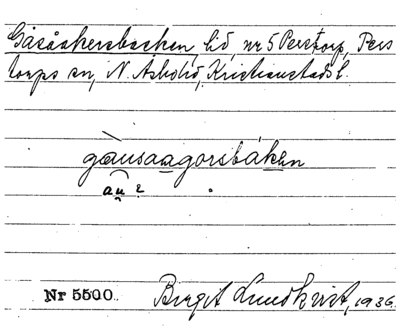 Gåsåkersbacken, lid, nr 5 Perstorp, Pers
torps sn, N. Åsbo hd, Kristianstads l.
gàusaagorsbáken
au ?
Nr 5500.
Birgit Lundkvist, 1936.